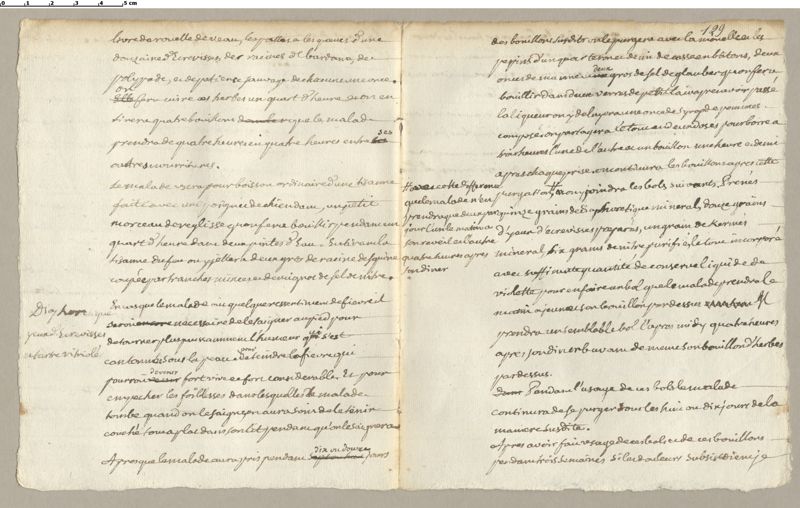 livre de rouelle de veau, les pattes et les queues d'une
douzaine d'Ecrevisses, des racines de bardane, de
polypode, et de patience sauvage de chacune une once.
on fera cuire ces herbes un quart d'heure, et on en
tirera quatre bouillons que le malade
prendra de quatre heures en quatre heures entre ses
autres nourritures.
Le malade usera pour boisson ordinaire d'une tisanne
faite avec une poignée de chiendent, un petit
morceau de reglisse qu'on fera bouillir pendant un
quart d'heure dans deux pintes d'Eau. En tirant la
tisanne du feu on y jettera deux gros de racine de squine
coupée par tranches minces et demi gros de sel de nitre.
Diaphoretique
yeux d'Ecrevisses
et tartre vitriolé
En cas que le malade eut quelque ressentiment de fievre il
seroit necessaire de le saigner au pied pour
detourner plus puissamment l'humeur qui s'est
cantonnée sous la peau et detendre la fievre qui
pourroit devenir fort vive et fort considerable. Et pour
empecher les foiblesses dans lesquelles le malade
tombe quand on le saigne, on aura soin de le tenir
couché tout a plat dans son lit pendant qu'on le saignera
Apres que le malade aura pris pendant dix ou douze jours
129
des bouillons susdits on le purgera avec la mouelle et les
pepins d'un quarteron et demi de casse en bâtons, deux
onces de manne, deux gros de sel de glauber qu'on fera
bouillir dans deux verres de petit lait apres avoir passé
la liqueur on y delayera une once de syrop de pommes
composé on partagera le tout en deux doses pour boire a
trois heures l'une de l'autre et un bouillon une heure et demie
apres chaque prise. on continuera les bouillons apres cette
purgation et on y joindra les bols suivants, Prenés
quinze grains de Diaphoretique mineral, douze grains
d'yeux d'écrevisses preparés, un grain de Kermés
mineral, six grains de nitre purifié, le tout incorporé
avec suffisante quantité de conserve liquide de
violette pour en faire un bol que le malade prendra le
matin a jeun et son bouillon par dessus Il
prendra un semblable bol l'apres midy quatre heures
apres son diner buvant de meme son bouillon d'herbes
par dessus.
avec cette difference
que le malade n'en
prendra que deux par
jour l'un le matin a
son reveil et l'autre
quatre heures apres
son diner
Pendant l'usage de ces bols le malade
continuera de se purger tous les huit ou dix jours de la
maniere susdite.
Apres avoir fait usage de ces bols et de ces bouillons
pendant trois semaines si les douleurs subsistoient je